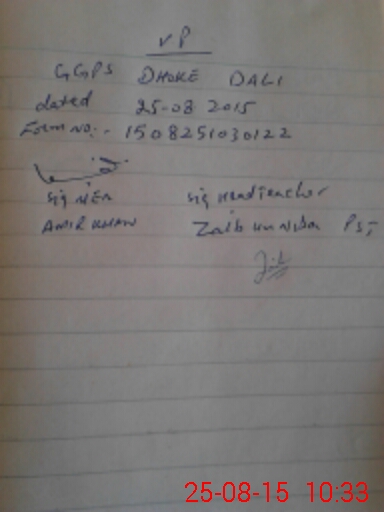 VP
GGPS DHOKE DALI
dated 25-08 2015
Form NO:- 1508251030122
Sig MEA Sig Headteacher
AMIR KHAN Zaib un Nisa PST
25-08-15 10:33